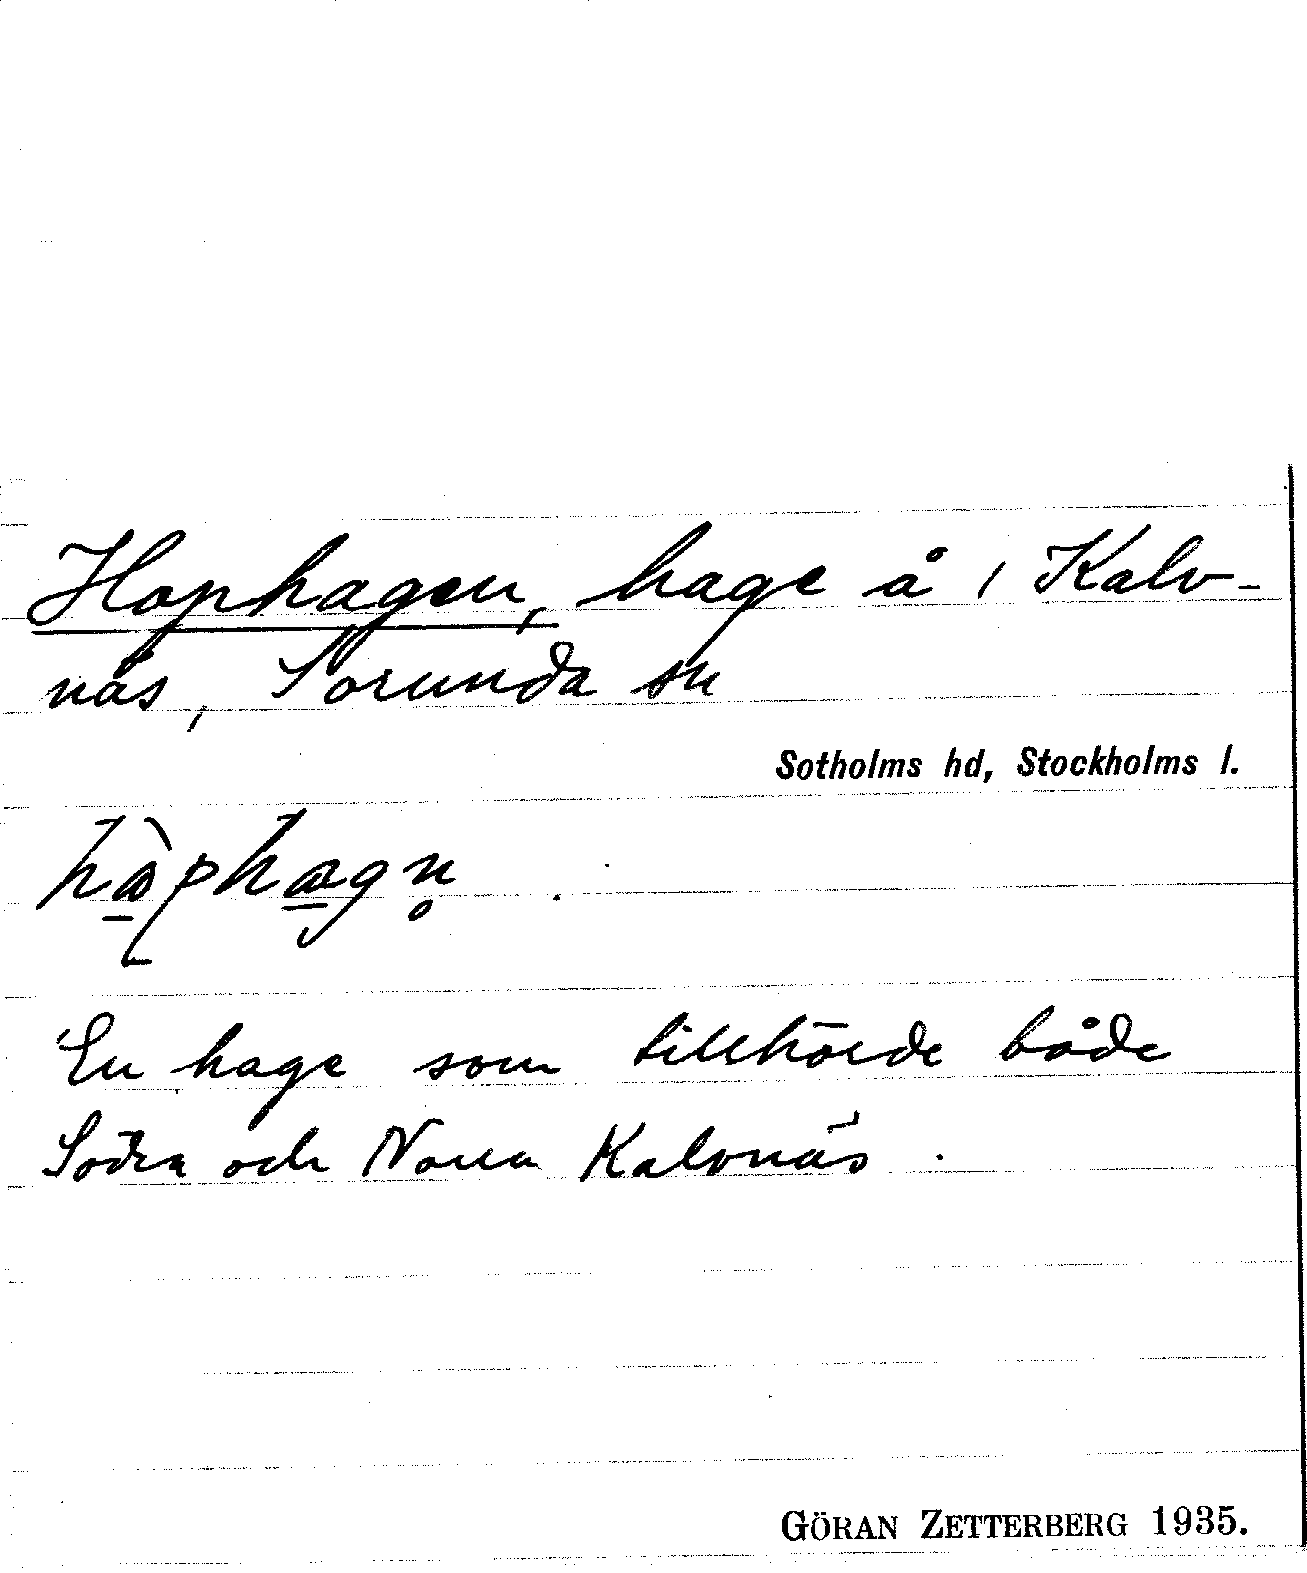 Hophagen, hage å 1 Kalv-
näs, Sorunda sn
Sotholms hd, Stockholms l.
En hage som tillhörde både
Södra och Norra Kalvnäs.
GÖRAN ZETTERBERG 1935.